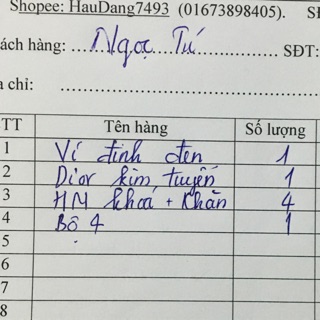 Shopee: HauDang7493 (01673898405). S
ách hàng: Ngọc Tú SĐT:
a chỉ:
TT Tên hàng Số lượng
1 Ví đinh đen 1
2 Dior kim tuyến 1
3 HM khoá + khăn 4
4 Bộ 4 1
5
6
7
8